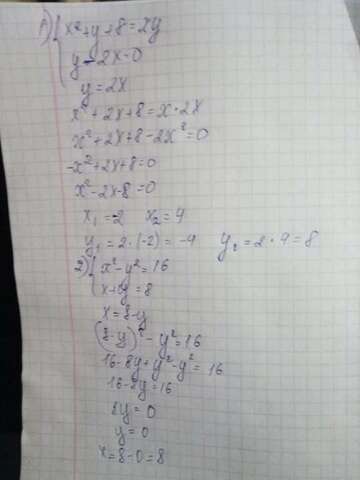 1) { x²+y+8=xy
y-2x=0
y=2x
x²+2x+8=x·2x
x²+2x+8-2x²=0
-x²+2x+8=0
x²-2x-8=0
x₁=-2 x₂=4
y₁=2·(-2)=-4 y₂=2·4=8
2) { x²-y²=16
x+y=8
x=8-y
(8-y)²-y²=16
16-8y+y²-y²=16
16-8y=16
8y=0
y=0
x=8-0=8